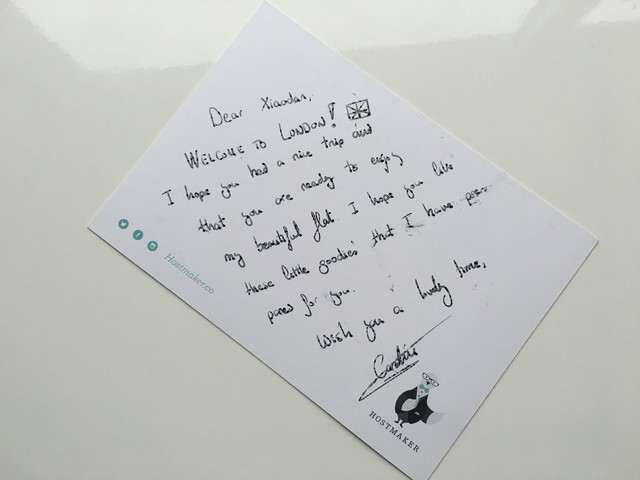 Dear Xiaodan,
WELCOME TO LONDON!
I hope you had a nice trip and
that you are ready to enjoy
my beautiful flat. I hope you like
these little goodies that I have
pared for you.
Wish you a lovely time,
Hostmaker.co
HOSTMAKER